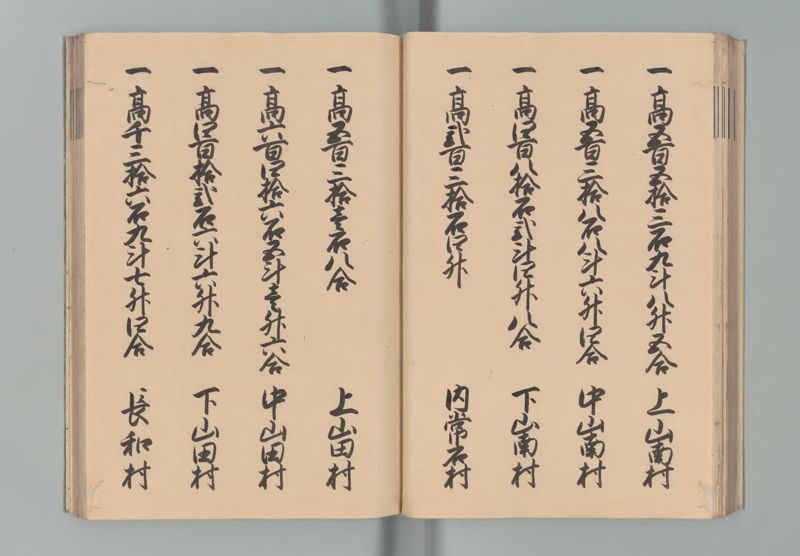 一 高五百五拾三石九斗八升五合 上山南村
一 高五百三拾八石八斗六升四合 中山南村
一 高四百八拾石弐斗四升八合 下山南村
一 高弐百三拾石四升 内常石村
一 高五百三拾壱石八合 上山田村
一 高六百四拾六石五斗壱升六合 中山田村
一 高四百拾弐石六斗六升九合 下山田村
一 高千三拾六石九斗七升四合 長和村